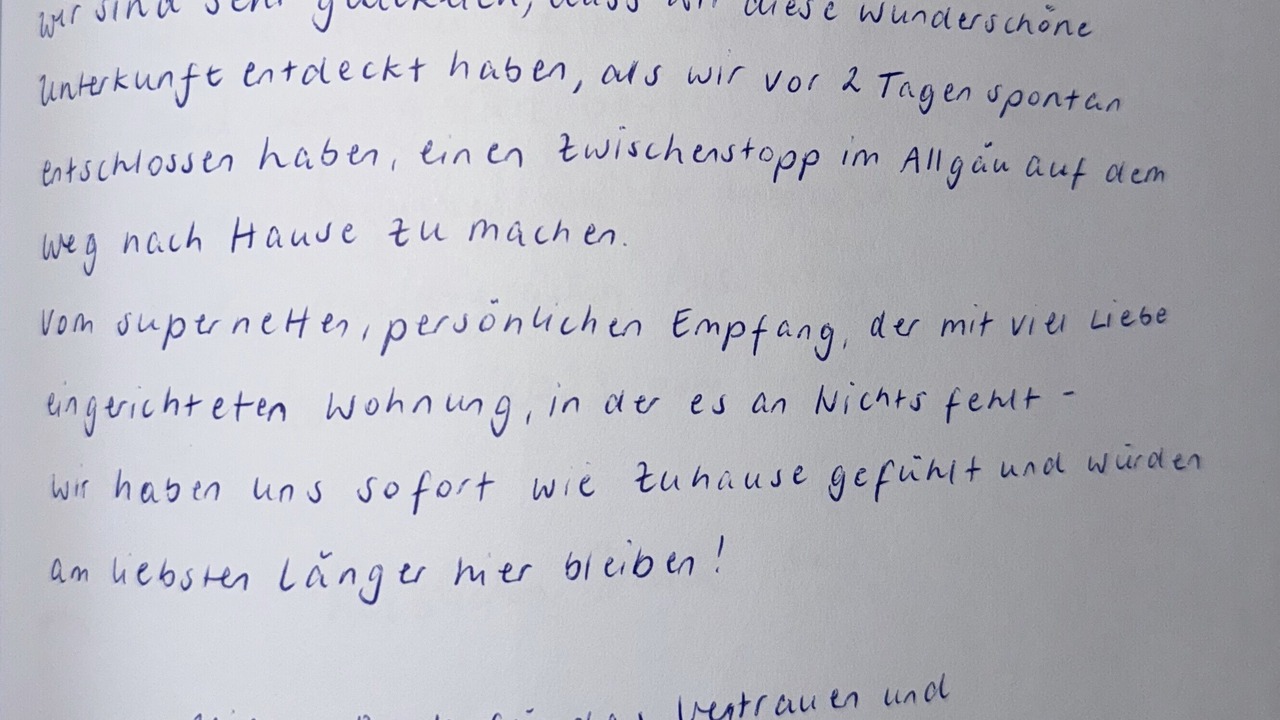 wir sind sehr glücklich, dass wir diese wunderschöne
Unterkunft entdeckt haben, als wir vor 2 Tagen spontan
entschlossen haben, einen Zwischenstopp im Allgäu auf dem
Weg nach Hause zu machen.
Vom supernetten, persönlichen Empfang, der mit viel Liebe
eingerichteten Wohnung, in der es an Nichts fehlt -
wir haben uns sofort wie Zuhause gefühlt und würden
am liebsten länger hier bleiben!
Vertrauen und